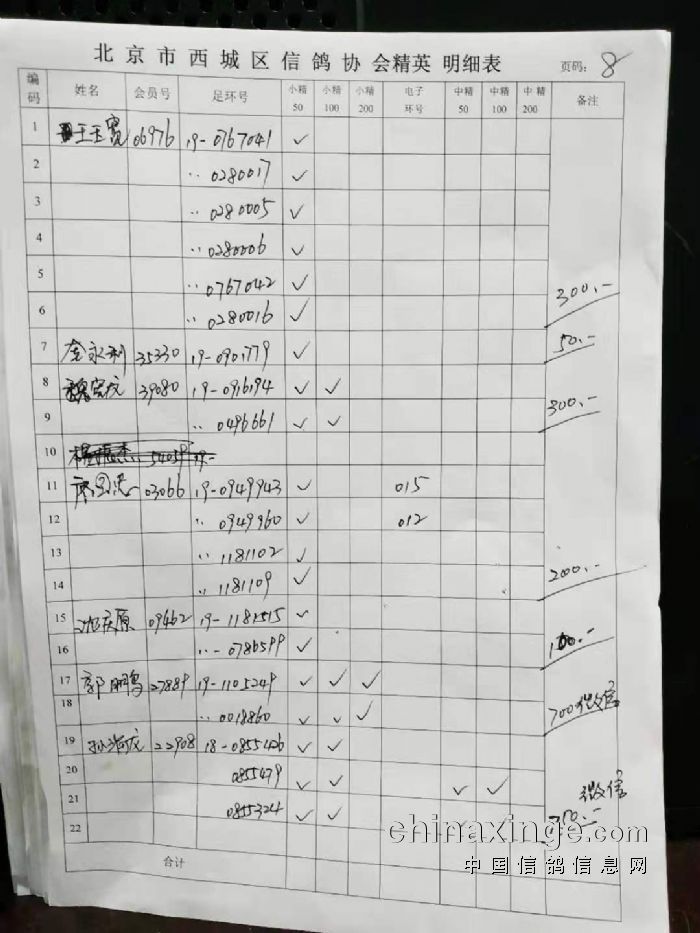 北京市西城区信鸽协会精英明细表 页码: 8
编码 姓名 会员号 足环号 小精50 小精100 小精200 电子环号 中精50 中精100 中精200 备注
1 王玉宽 06976 19-0767041 ✓
2 ‥ 0280017 ✓
3 ‥ 0280005 ✓
4 ‥ 0280006 ✓
5 ‥ 0767042 ✓
6 ‥ 0280016 ✓ 300.-
7 金永利 35330 19-0901779 ✓ 50.-
8 39080 19-0916194 ✓ ✓
9 ‥ 0496661 ✓ ✓ 300.-
10
11 03066 19-0949943 ✓ 015
12 ‥ 0949960 ✓ 012
13 ‥ 1181102 ✓
14 ‥ 1181109 ✓ 200.-
15 沈庆原 09462 19-1181515 ✓
16 ‥- 0786599 ✓ 100.-
17 郭鹏 27889 19-1105249 ✓ ✓ ✓
18 ‥ 0018860 ✓ ✓ ✓ 700微信
19 22908 18-0855426 ✓ ✓
20 0855479 ✓ ✓ ✓ ✓ 微信
21 0855324 ✓ ✓
22
合计
chinaxinge.com
中国信鸽信息网